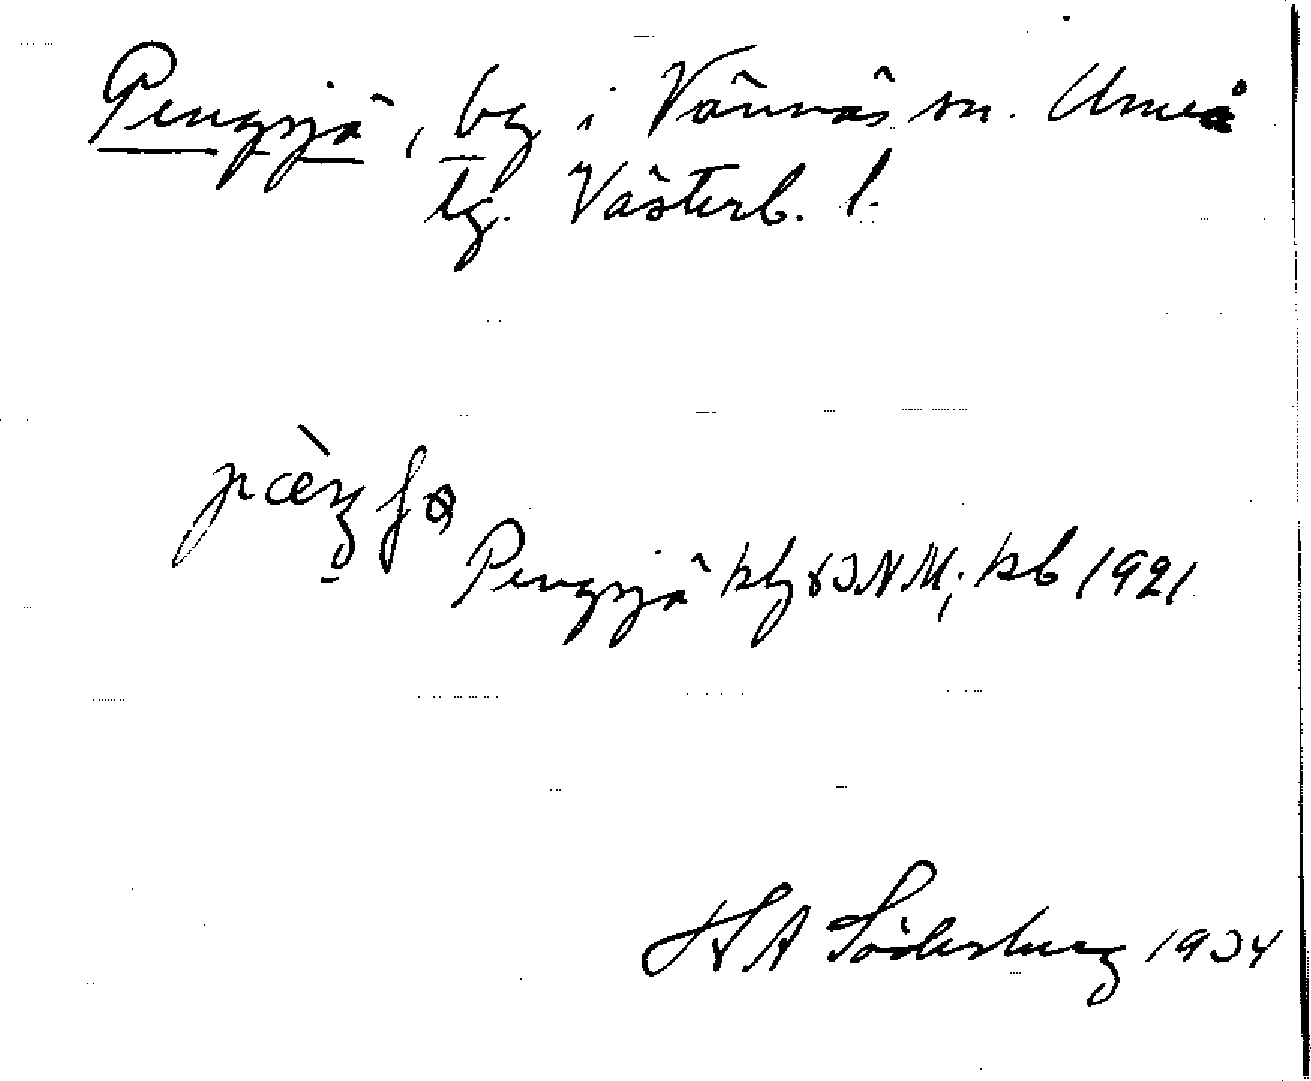 Pengsjö, by i Vännäs sn. Umeå
tg. Västerb. l.
Pengsjö kb 1921
H A Söderberg 1934